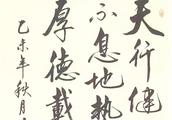 天行健
不息地势
厚德载
乙未年秋月